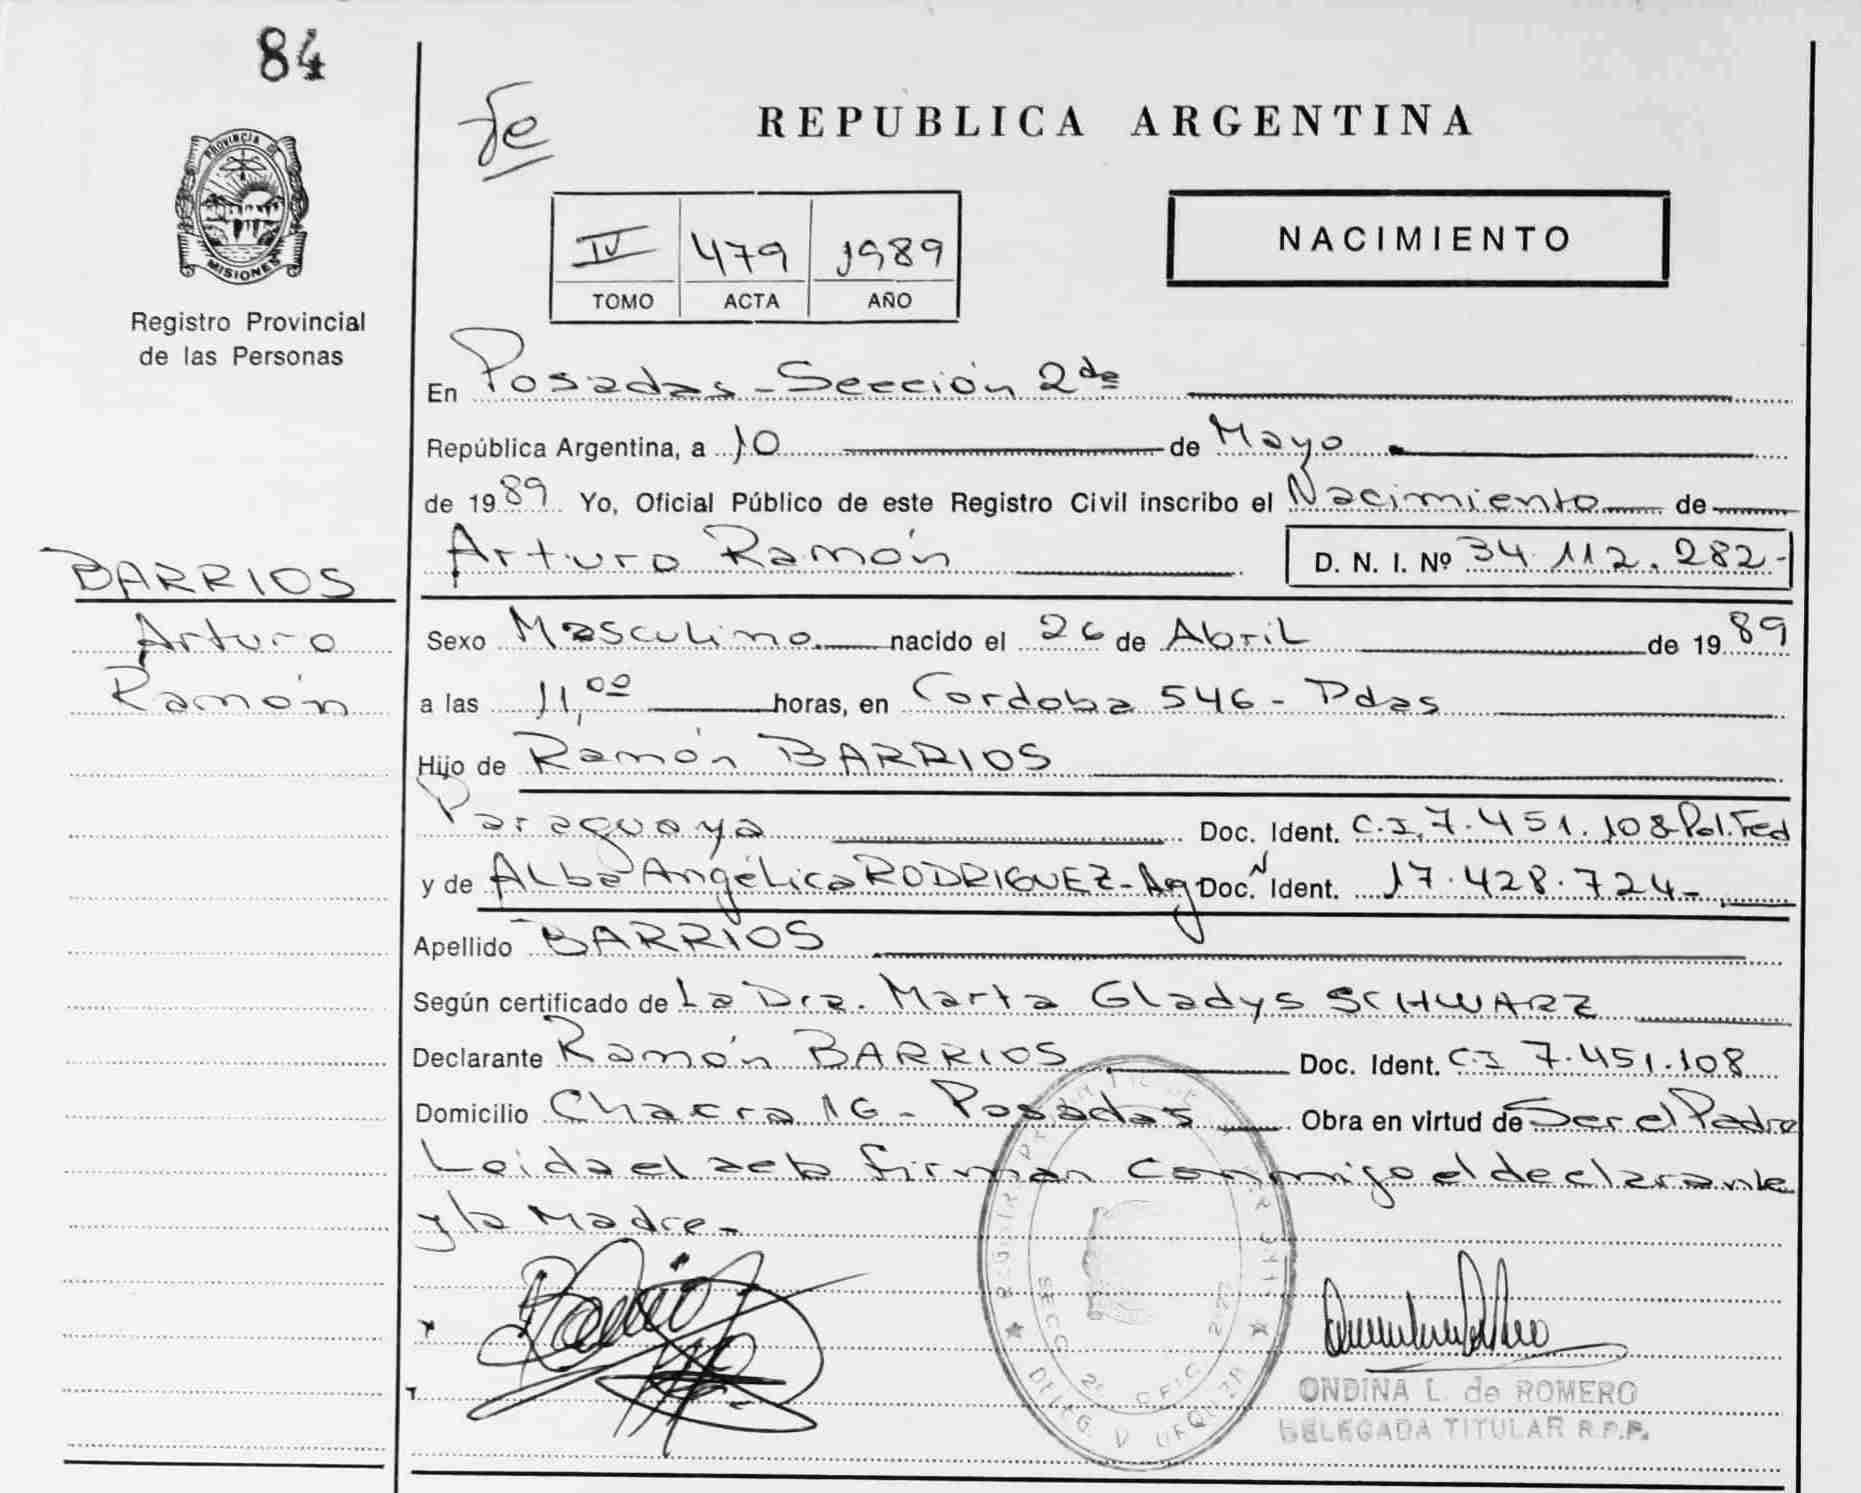 84
fe
REPUBLICA ARGENTINA
PROVINCIA DE
MISIONES
Registro Provincial
de las Personas
IV 479 1989
TOMO ACTA AÑO
NACIMIENTO
En Posadas - Sección 2da
República Argentina, a 10 de Mayo
de 1989 Yo, Oficial Público de este Registro Civil inscribo el Nacimiento de
Arturo Ramón D. N. I. Nº 34.112.282-
BARRIOS
Arturo
Ramón
Sexo Masculino nacido el 26 de Abril de 1989
a las 11,00 horas, en Cordoba 546 - Pdas
Hijo de Ramón BARRIOS
Paraguaya Doc. Ident. C.I. 7.451.108 Pol. Fed
y de Alba Angélica RODRIGUEZ - Ag Doc. Ident. 17.428.724-
Apellido BARRIOS
Según certificado de La Dra. Marta Gladys SCHWARZ
Declarante Ramón BARRIOS Doc. Ident. C.I 7.451.108
Domicilio Chacra 16 - Posadas Obra en virtud de Ser el Padre
Leida el acta firman conmigo el declarante
y la Madre -
ONDINA L. de ROMERO
DELEGADA TITULAR R.P.P.